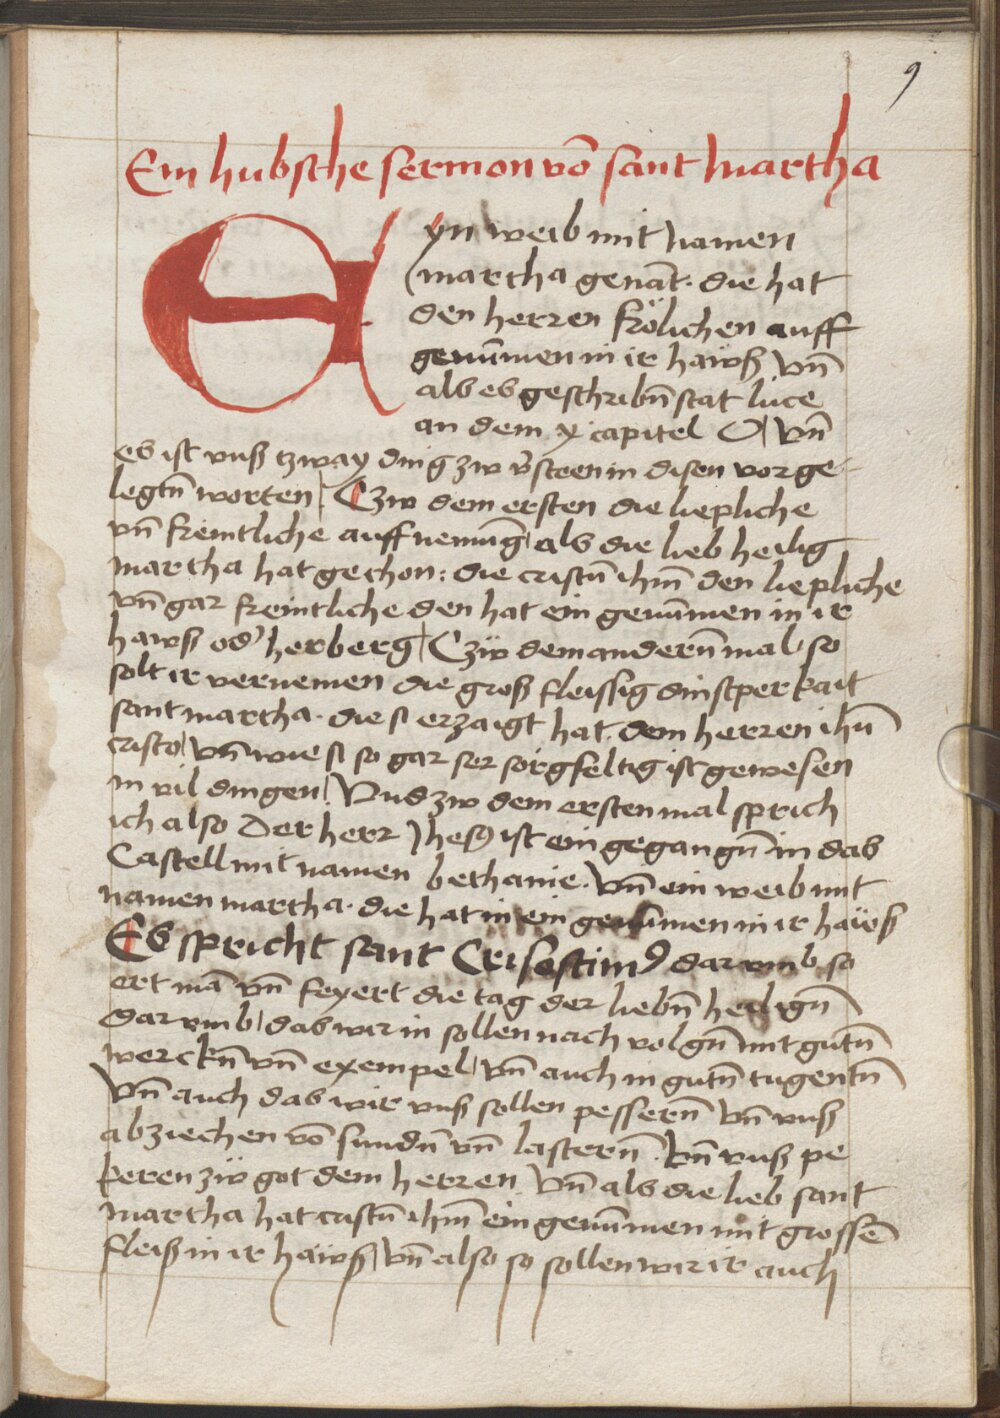 9
Ein hubsche sermon vō sant martha
Eyn weib mit namen
martha genāt. die hat
den herren frölichen auff
genūmen in ir haẅß vn̄
als es geschribn̄ stat luce
an dem x capitel O| vn̄
es ist vnß tzway ding zw v̄steen in disen vorge-
legtn̄ worten| Czw dem ersten die liepliche
vn̄ freintliche auffnemūg| als die lieb heilig
martha hat gethon: die cristū ihm̄ den liepliche
vn̄ gar freintliche den hat ein genūmen in ir
hawß od' herberg| Czẅ dem andern̄ mal| so
solt ir vernemen die groß fleissig dinstperkait
sant martha. die si erzaigt hat. dem herren ihū
cristo| vn̄ wie si so gar ser sorgfeltig ist gewesen
in vil dingen| Vnd zw dem ersten mal sprich
ich also Der herr Jhesꝰ ist ein gegangn̄ in das
Castell mit namen bethanie. vn̄ ein weib mit
namen martha. die hat in ein genūmen in ir haẅß
Es spricht sant Crisostimꝰ darumb so
ert mā vn̄ feyert die tag der liebn̄ heilign̄
darumb| das wir in sollen nach volgn̄ mit gutn̄
werckn̄ vn̄ exempel| vn̄ auch in gutn̄ tugentn̄
vn̄ auch das wir vnß sollen pessern̄ vn̄ vnß
abziechen vō sundn̄ vn̄ lastern̄. vn̄ vnß pe
keren zẅ got dem herren vn̄ als die lieb sant
martha hat cristū ihm̄ ein genūmen mit grossē
fleiß in ir haẅß| vn̄ also so sollen wir ir auch